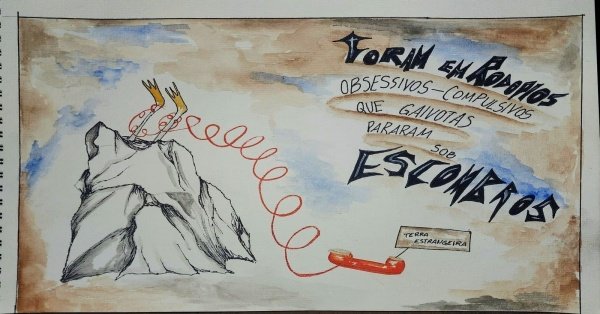 FORAM EM RODOPIOS
OBSESSIVOS-COMPULSIVOS
QUE GAIVOTAS
PARARAM SOB
ESCOMBROS
TERRA
ESTRANGEIRA